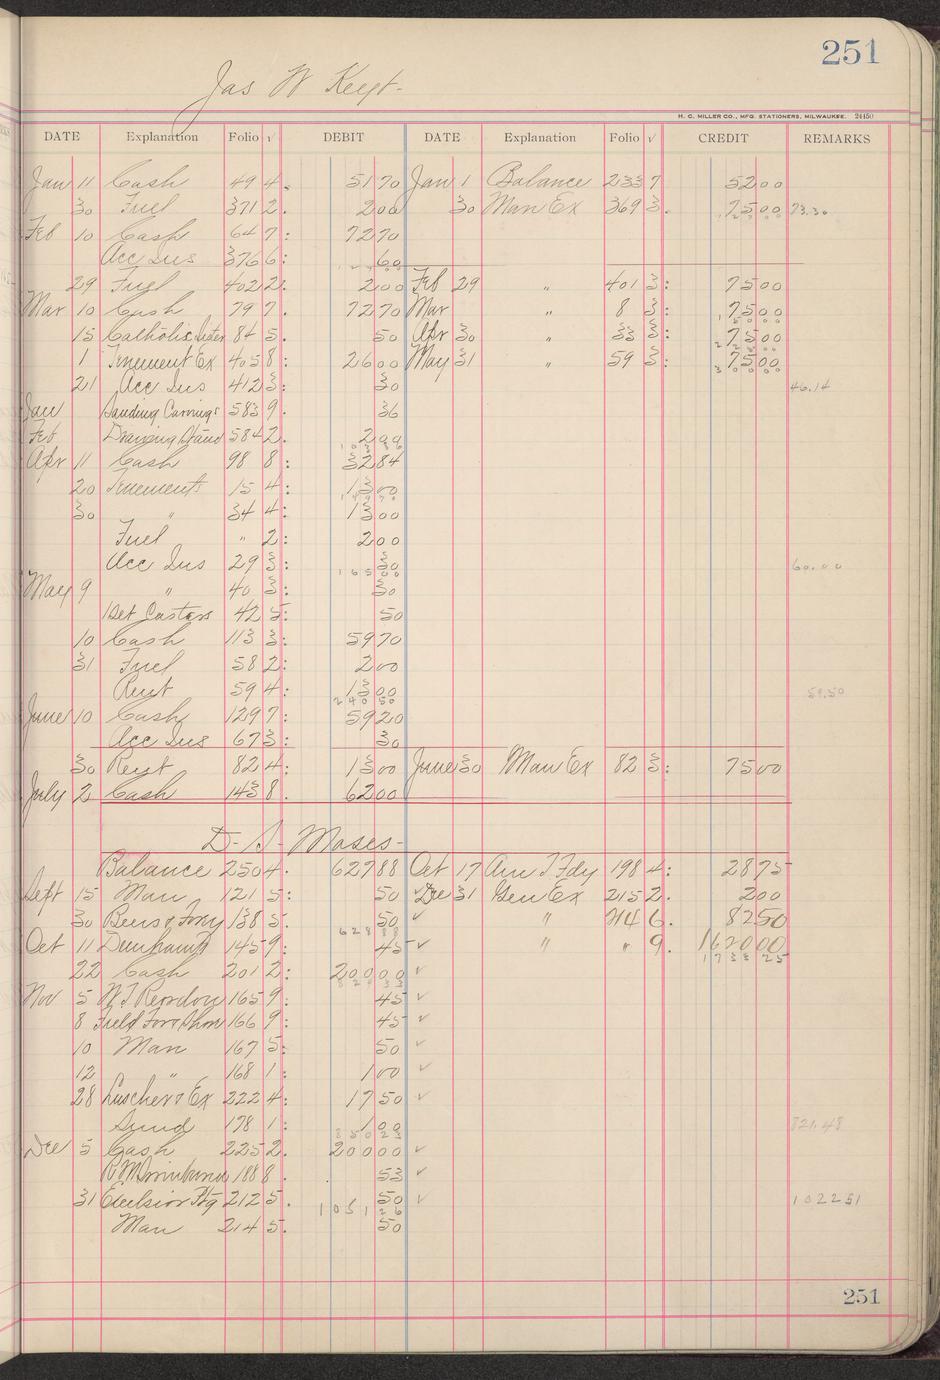 251
Jas W Keyt-
H. C. MILLER CO., MFG. STATIONERS, MILWAUKEE. 24450
DATE Explanation Folio √ DEBIT DATE Explanation Folio √ CREDIT REMARKS
Jan 11 Cash 49 4. 51 70 Jan 1 Balance 233 7 52 00
30 Fuel 371 2. 2 00 30 Man Ex 369 3. 75 00 73.30
Feb 10 Cash 64 7: 72 70
Acc Ins 376 6: 60
29 Fuel 402 2: 2 00 Feb 29 " 401 3: 75 00
Mar 10 Cash 79 7. 72 70 Mar " 8 3: 75 00
15 Catholic Sister 84 5. 50 Apr 30 " 33 3: 75 00
1 Tenement Ex 405 8: 26 00 May 31 " 59 3: 75 00
21 Acc Ins 412 3: 30 46.14
Jan Sanding Carvings 583 9. 36
Feb Drawing Stand 584 2. 2 00
Apr 11 Cash 98 8: 32 84
20 Tenements 15 4: 13 00
30 " 34 4: 13 00
Fuel " 2: 2 00
Acc Ins 29 3: 30 60.00
May 9 " 40 3: 30
1 Set Castors 42 5: 50
10 Cash 113 3: 59 70
31 Fuel 58 2: 2 00
Rent 59 4: 13 00 59.50
240 50
June 10 Cash 129 7: 59 20
Acc Ins 67 3: 30
30 Rent 82 4: 13 00 June 30 Man Ex 82 3: 75 00
July 2 Cash 143 8. 62 00
D. S. Moses-
Balance 250 4. 627 88 Oct 17 Am T Fdy 198 4: 28 75
Sept 15 Man 121 5: 50 √ Dec 31 Gen Ex 215 2. 2 00
30 138 5. 50 √ " 214 6. 82 50
628 88
Oct 11 Dunham 145 9: 45 √ " " 9. 1620 00
1733 25
22 Cash 201 2: 200 00 √
Nov 5 W J Reordon 165 9: 45 √
8 Field Fore 166 9: 45 √
10 Man 167 5: 50 √
12 " 168 1: 1 00 √
28 Luscher & Ex 222 4: 17 50 √
Sund 178 1: 1 00 821.48
850 23
Dec 5 Cash 225 2. 200 00 √
188 8. 53 √
31 Excelsior Ptg 212 5. 50 √ 1022 51
1051 26
Man 214 5. 50
251